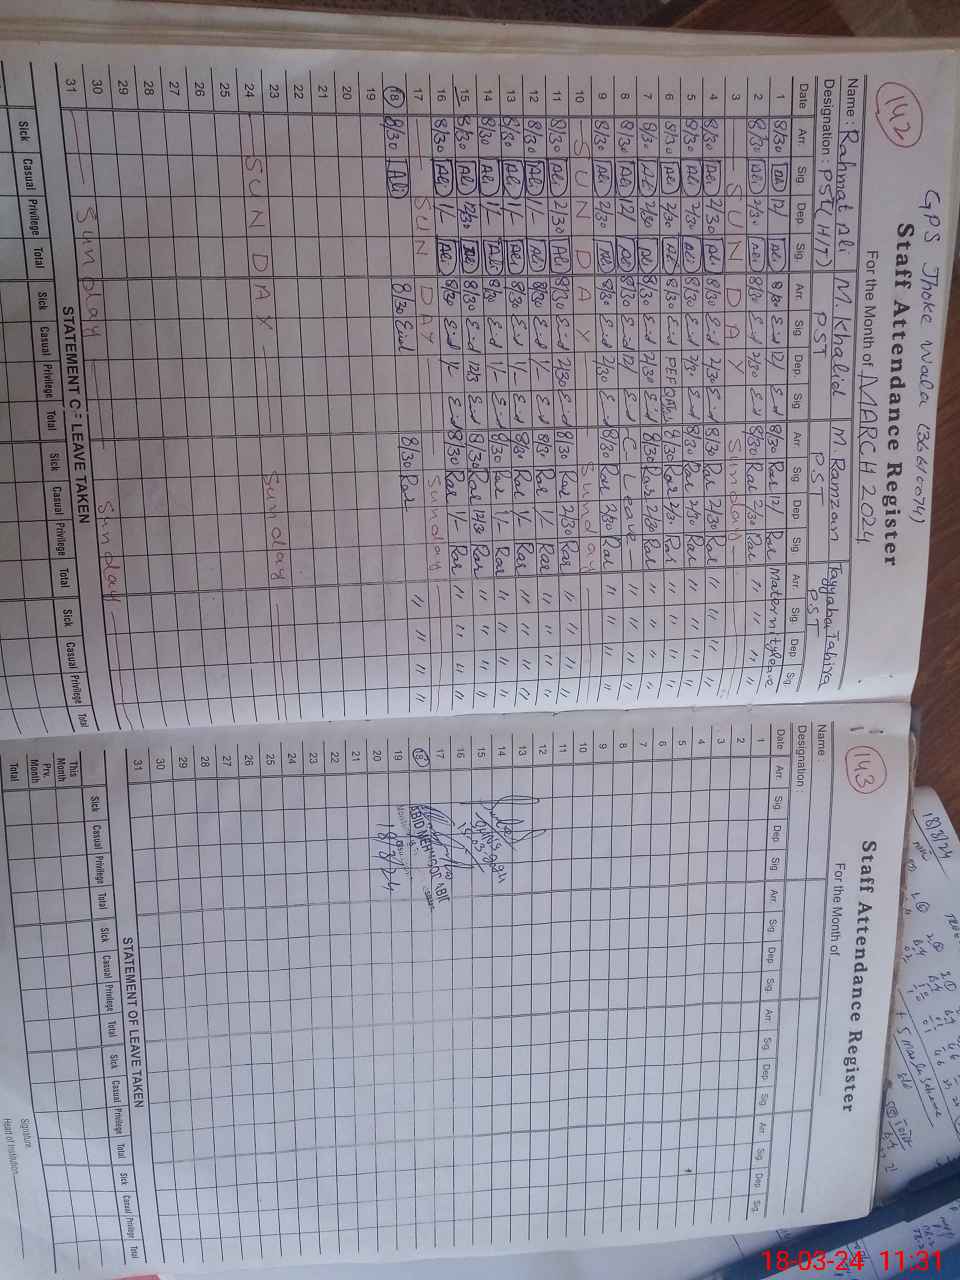 142
GPS Thoke Wala (36610074)
Staff Attendance Register
For the Month of MARCH 2024
Name : Rahmat Ali M. Khalid M. Ramzan Tayyaba Tahira
Designation : PST (H/T) PST PST PST
Date Arr. Sig Dep Sig Arr. Sig. Dep. Sig Arr. Sig. Dep. Sig Arr Sig. Dep Sig.
1 8/30 Ali 12/ Ali 8/30 Eid 12/ Eid 8/30 Rar 12/ Rar Maternity leave
2 8/30 Ali 2/30 Ali 8/30 Eid 2/30 Eid 8/30 Rar 2/30 Rar " "
3 SUNDAY Sunday
4 8/30 Ali 2/30 Ali 8/30 Eid 2/30 Eid 8/30 Rar 2/30 Rar " " " "
5 8/30 Ali 2/30 Ali 8/30 Eid 2/30 Eid 8/30 Rar 2/30 Rar " " " "
6 8/30 Ali 2/30 Ali 8/30 Eid PEF 8/30 Rar 2/30 Rar " " " "
7 8/30 Ali 2/30 Ali 8/30 Eid 2/30 Eid 8/30 Rar 2/30 Rar " " " "
8 8/30 Ali 12/ Ali 8/30 Eid 12/ Eid C- Leave - " " " "
9 8/30 Ali 2/30 Ali 8/30 Eid 2/30 Eid 8/30 Rar 2/30 Rar " " " "
10 SUNDAY Sunday
11 8/30 Ali 2/30 Ali 8/30 Eid 2/30 Eid 8/30 Rar 2/30 Rar " " " "
12 8/30 Ali 1/- Ali 8/30 Eid 1/- Eid 8/30 Rar 1/- Rar " " " "
13 8/30 Ali 1/- Ali 8/30 Eid 1/- Eid 8/30 Rar 1/- Rar " " " "
14 8/30 Ali 1/- Ali 8/30 Eid 1/- Eid 8/30 Rar 1/- Rar " " " "
15 8/30 Ali 12/30 Ali 8/30 Eid 12/3 Eid 8/30 Rar 12/30 Rar " " " "
16 8/30 Ali 1/- Ali 8/30 Eid 1/- Eid 8/30 Rar 1/- Rar " " " "
17 SUNDAY Sunday " " " "
18 8/30 Ali 8/30 Eid 8/30 Rar
19
20
21
22
23
24 SUNDAY Sunday
25
26
27
28
29
30
31 Sunday Sunday
STATEMENT OF LEAVE TAKEN
Sick Casual Privilege Total Sick Casual Privilege Total Sick Casual Privilege Total Sick Casual Privilege Total
143
Staff Attendance Register
For the Month of
Name :
Designation :
Date Arr. Sig. Dep Sig Arr Sig. Dep Sig. Arr Sig. Dep Sig Arr Sig. Dep Sig.
1
2
3
4
5
6
7
8
9
10
11
12
13
14
15
16
17
18
19
20
21
22
23
24
25
26
27
28
29
30
31
18/3/24
STATEMENT OF LEAVE TAKEN
Sick Casual Privilege Total Sick Casual Privilege Total Sick Casual Privilege Total Sick Casual Privilege Total
This Month
Prv. Month
Total
Signature
Head of Institution
18/3/24
18-03-24 11:31